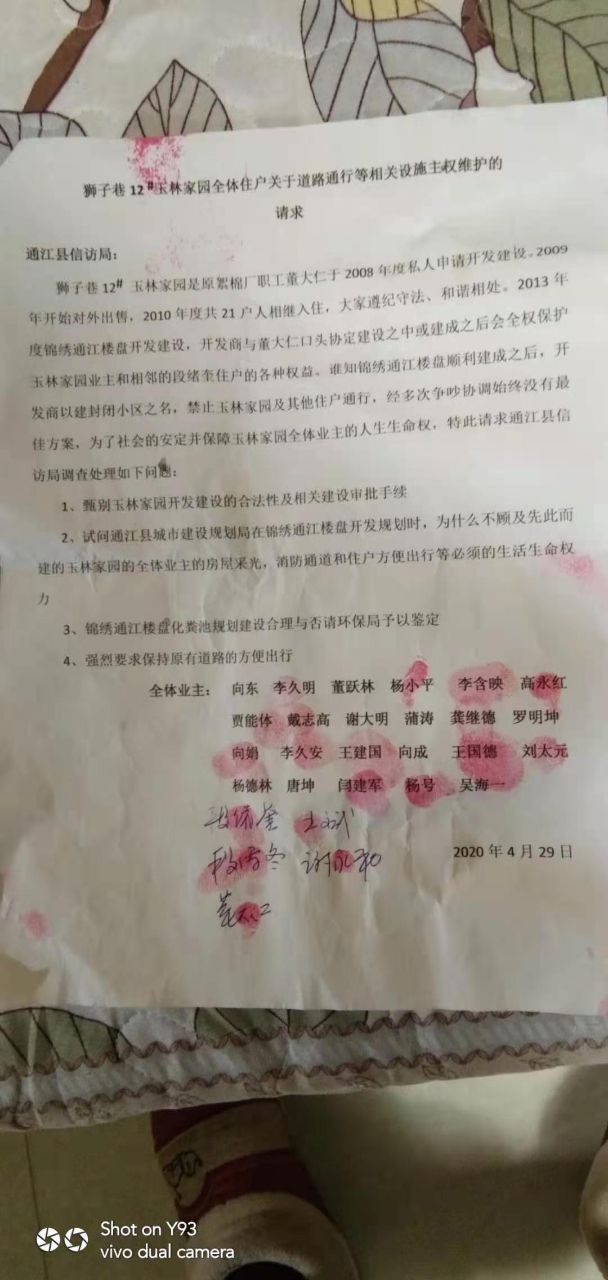 狮子巷 12# 玉林家园全体住户关于道路通行等相关设施主权维护的
请求
通江县信访局：
狮子巷 12# 玉林家园是原絮棉厂职工董大仁于 2008 年度私人申请开发建设。2009
年开始对外出售，2010 年度共 21 户人相继入住，大家遵纪守法、和谐相处。2013 年
度锦绣通江楼盘开发建设，开发商与董大仁口头协定建设之中或建成之后会全权保护
玉林家园业主和相邻的段绪奎住户的各种权益。谁知锦绣通江楼盘顺利建成之后，开
发商以建封闭小区之名，禁止玉林家园及其他住户通行，经多次争吵协调始终没有最
佳方案，为了社会的安定并保障玉林家园全体业主的人生生命权，特此请求通江县信
访局调查处理如下问题：
1、甄别玉林家园开发建设的合法性及相关建设审批手续
2、试问通江县城市建设规划局在锦绣通江楼盘开发规划时，为什么不顾及先此而
建的玉林家园的全体业主的房屋采光，消防通道和住户方便出行等必须的生活生命权
力
3、锦绣通江楼盘化粪池规划建设合理与否请环保局予以鉴定
4、强烈要求保持原有道路的方便出行
全体业主： 向东 李久明 董跃林 杨小平 李含映 高永红
贾能体 戴志高 谢大明 蒲涛 龚继德 罗明坤
向娟 李久安 王建国 向成 王国德 刘太元
杨德林 唐坤 闫建军 杨号 吴海一
王斌
2020 年 4 月 29 日
Shot on Y93
vivo dual camera